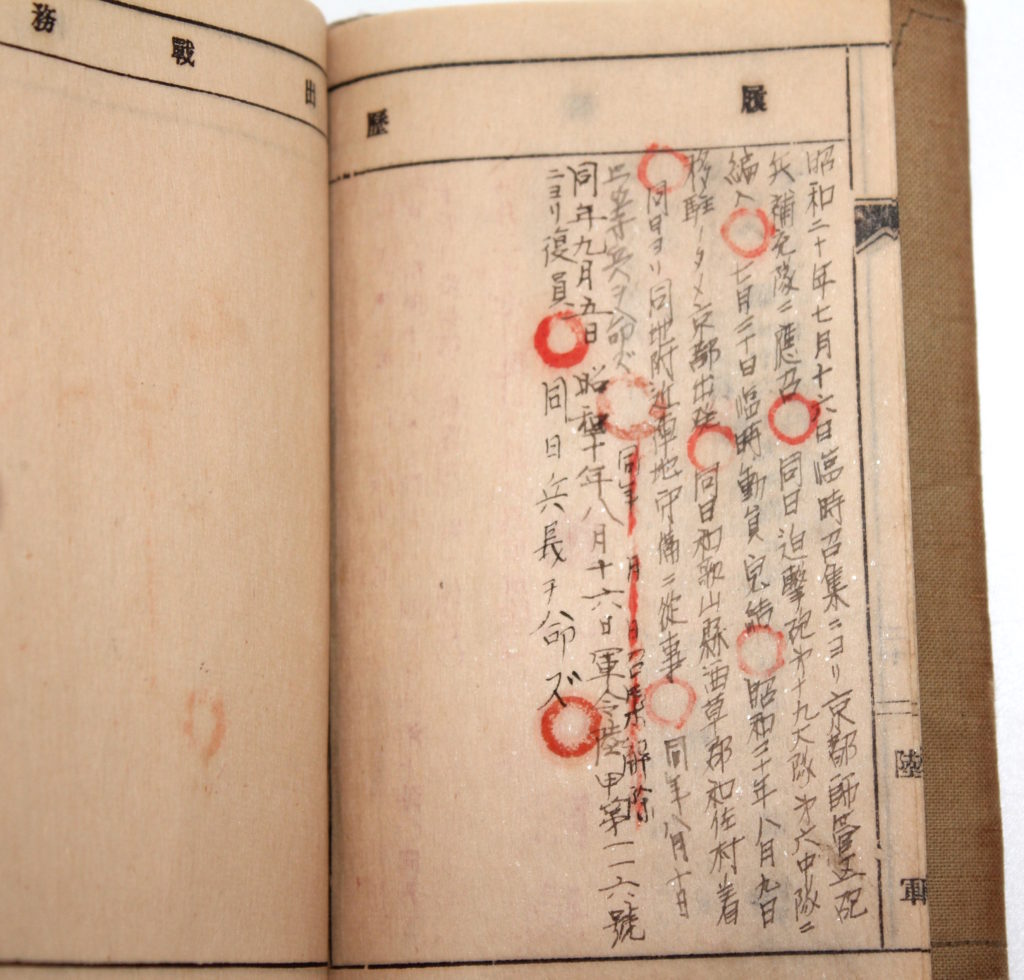 履歷
昭和二十年七月十六日臨時召集ニヨリ京都師管区砲
兵補充隊ニ應召 同日迫撃砲才十九大隊才六中隊ニ
編入 七月三十日臨時動員完結 昭和二十年八月九日
移駐ノタメ京都出発 同日和歌山縣海草郡和佐村着
同日ヨリ同地附近陣地守備ニ從事 同年八月十日
等兵ヲ命ズ 同年 月 日召集解除
同年九月五日 昭和二十年八月十六日軍令陸甲第一一六號
ニヨリ復員 同日兵長ヲ命ズ
陸軍
出戰務